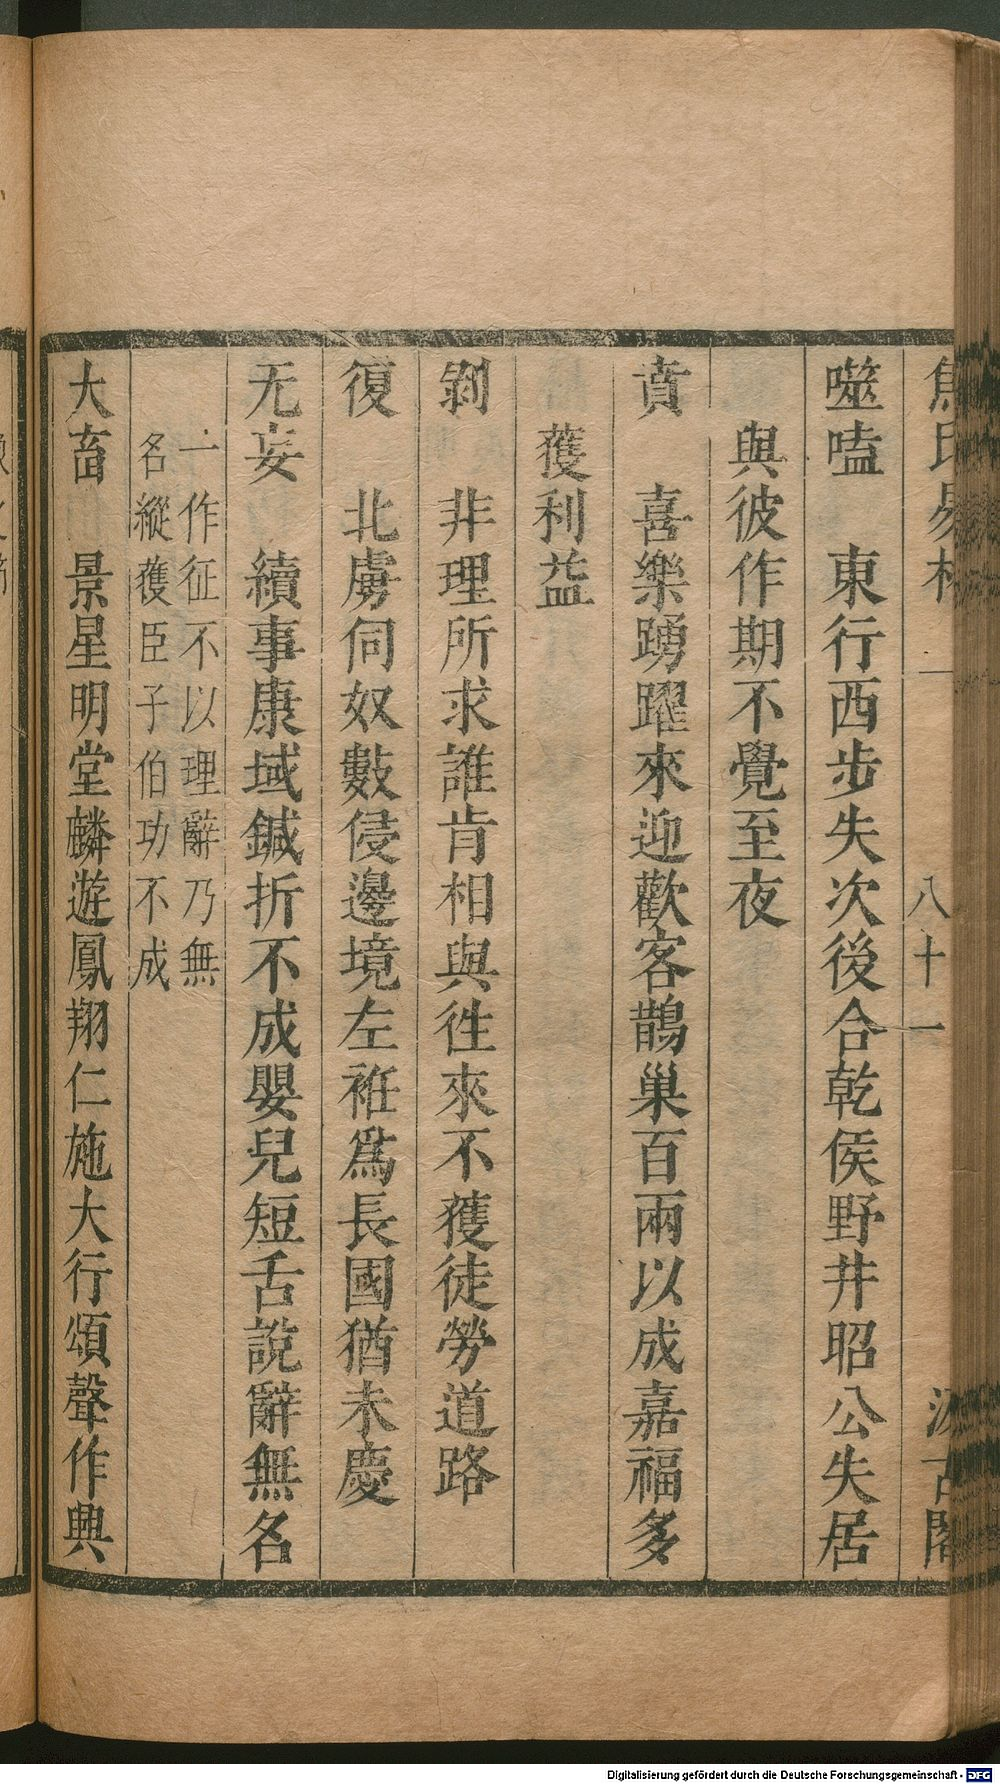 焦氏易林 一 八十一 汲古閣
噬嗑 東行西步失次後合乾侯野井昭公失居
與彼作期不覺至夜
賁 喜樂踴躍來迎歡客鵲巢百兩以成嘉福多
獲利益
剝 非理所求誰肯相與徃來不獲徒勞道路
復 北虜伺奴數侵邊境左袵爲長國猶未慶
无妄 續事康域鍼折不成嬰兒短舌說辭無名
一作征不以理辭乃無
名縱獲臣子伯功不成
大畜 景星明堂麟遊鳳翔仁施大行頌聲作興
Digitalisierung gefördert durch die Deutsche Forschungsgemeinschaft - DFG